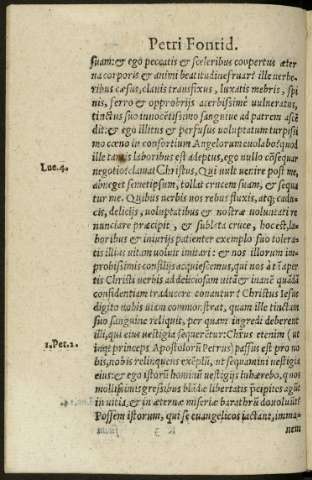 Petri Fontid.
suam: & ego peccatis & sceleribus coopertus æter
na corporis & animi beatitudine fruar? ille verbe-
ribus cæsus, clavis transfixus, luxatis mēbris, spi
nis, ferro & opprobrijs acerbissimè vulneratus,
tinctus suo innocētissimo sanguine ad patrem ascē
dit: & ego illitus & perfusus voluptatum turpissi
mo cœno in consortium Angelorum euolabo? quod
ille tantis laboribus est adeptus, ego nullo cōsequar
negotio? clamat Christus, Qui vult venire post me,
Luc. 9.
abneget semetipsum, tollat crucem suam, & sequa
tur me. Quibus verbis nos rebus fluxis, atq; cadu-
cis, delicijs, voluptatibus & nostræ voluntati re
nunciare præcipit, & sublata cruce, hoc est, la-
boribus & iniurijs patienter exemplo suo tolera-
tis illius vitam voluit imitari: & nos illorum im-
probissimis consilijs acquiescemus, qui nos à tā aper
tis Christi verbis ad deliciosam vitā & inanē quādā
confidentiam traducere conantur? Christus Iesus
digito nobis viam commonstrat, quam ille tinctam
suo sanguine reliquit, per quam ingredi deberent
illi, qui eius vestigia sequerētur: Chrūs etenim (ut
1. Pet. 2.
inquit princeps Apostolorū Petrus) passus est pro no
bis, nobis relinquens exēplū, ut sequamini vestigia
eius: & ego istorū hominū vestigijs inhærebo, quos
mollissimus gressibus blādæ libertatis præcipites agūt
in vitia, & in æternæ miseriæ barathrū devoluūt?
Possem istorum, qui se euangelicos iactant, imma-
nem